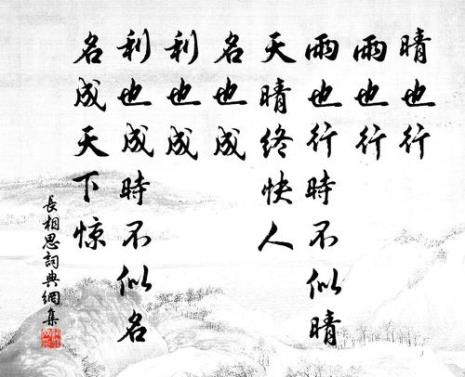 晴也行
雨也行
雨也行時不似晴
天晴終快人
名也成
利也成
利也成時不似名
名成天下惊
長相思詞典網集